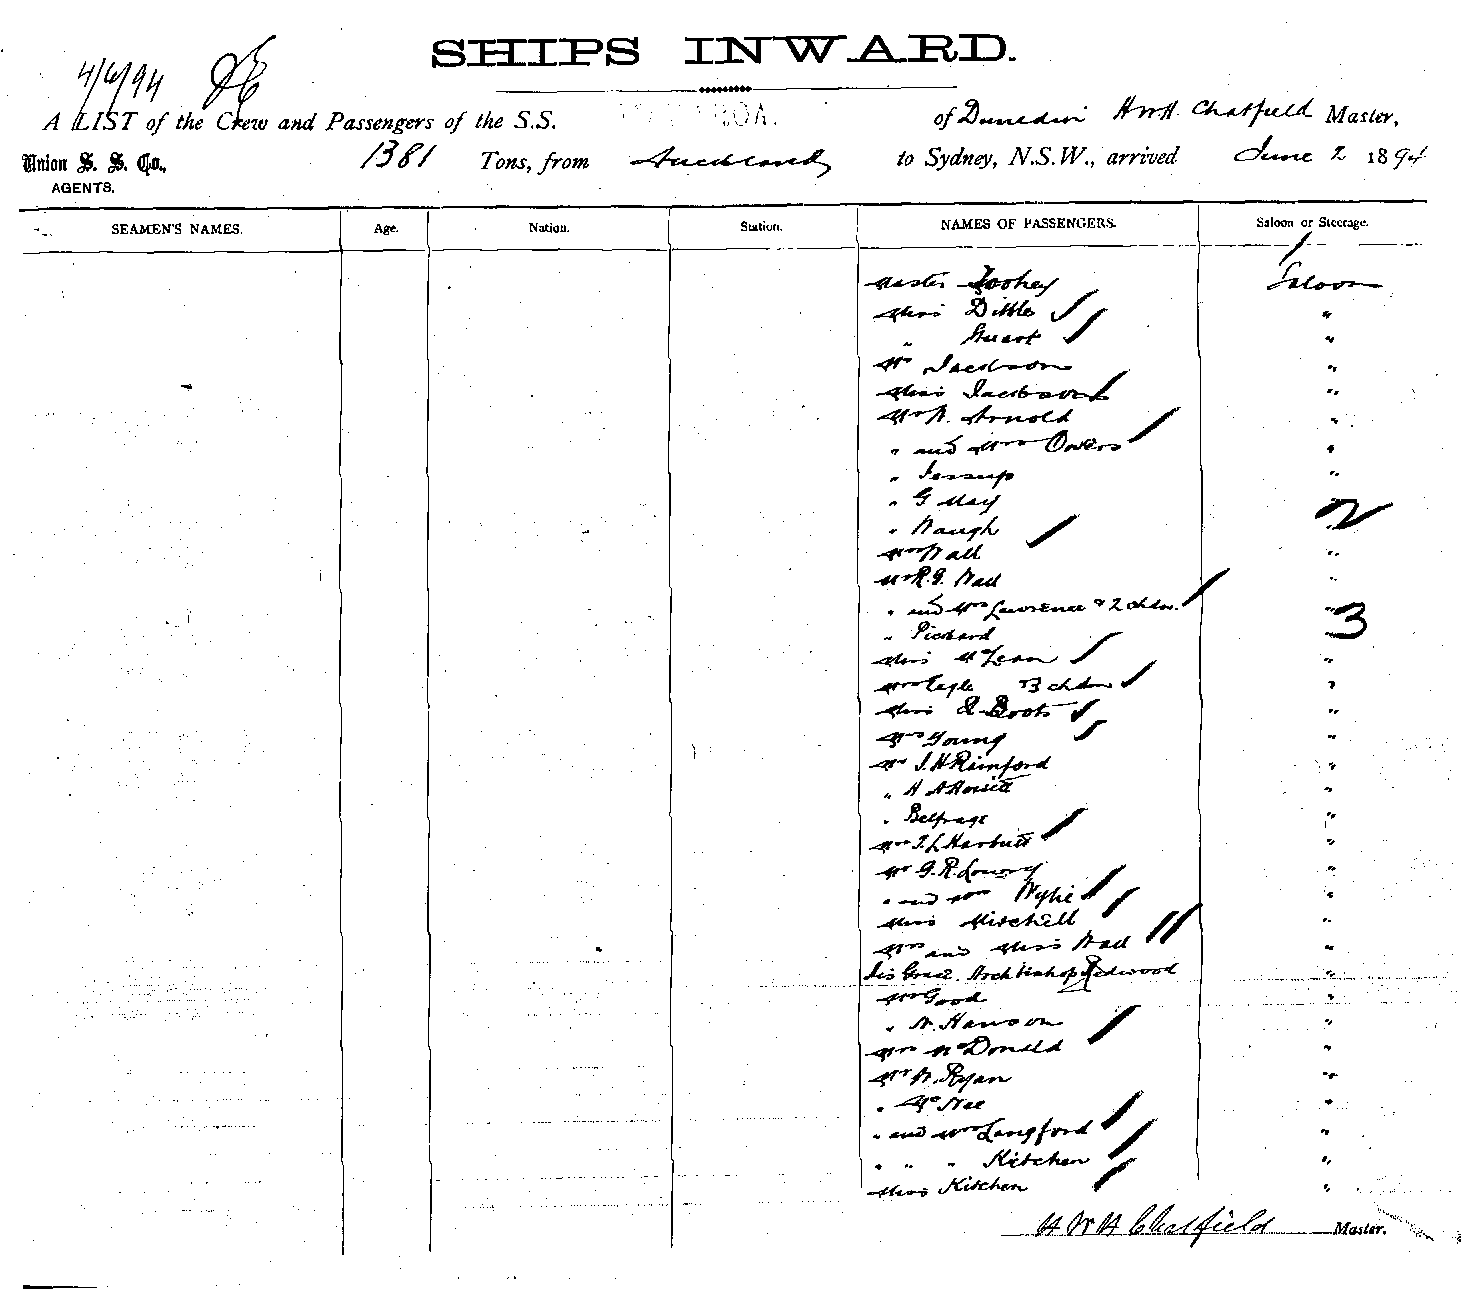 SHIPS INWARD.
4/6/94
A LIST of the Crew and Passengers of the S.S. of Dunedin HWH. Chatfield Master,
Union S. S. Co., 1381 Tons, from Auckland to Sydney, N.S.W., arrived June 2 1894
AGENTS.
SEAMEN'S NAMES. Age. Nation. Station. NAMES OF PASSENGERS. Saloon or Steerage.
Master Toohey Saloon
Miss Dibble "
" Stuart "
Mr Jackson "
Miss Jackson "
Mr W. Arnold "
" and Mrs Owers "
" Jessup "
" G May 2
" Waugh "
Mrs Wall "
Mr R.G. Wall "
" and Mrs Lawrence & 2 chdn. "
" Pickard 3
Miss McLean "
Mrs Eagle & 3 chdn "
Miss Boots "
Mrs Young "
Mr J.H Rainford "
" H A Howitt "
" Belfrage "
Mrs T.L Harbutt "
Mr G.R. Lowry "
" and Mrs Wylie "
Miss Mitchell "
Mrs and Miss Wall "
His Grace. Archbishop Redwood "
Mr Good "
" W. Hanson "
Mrs McDonald "
Mr W. Ryan "
" McNee "
" and Mrs Langford "
" " " Kitchen "
Miss Kitchen "
H W H Chatfield Master.